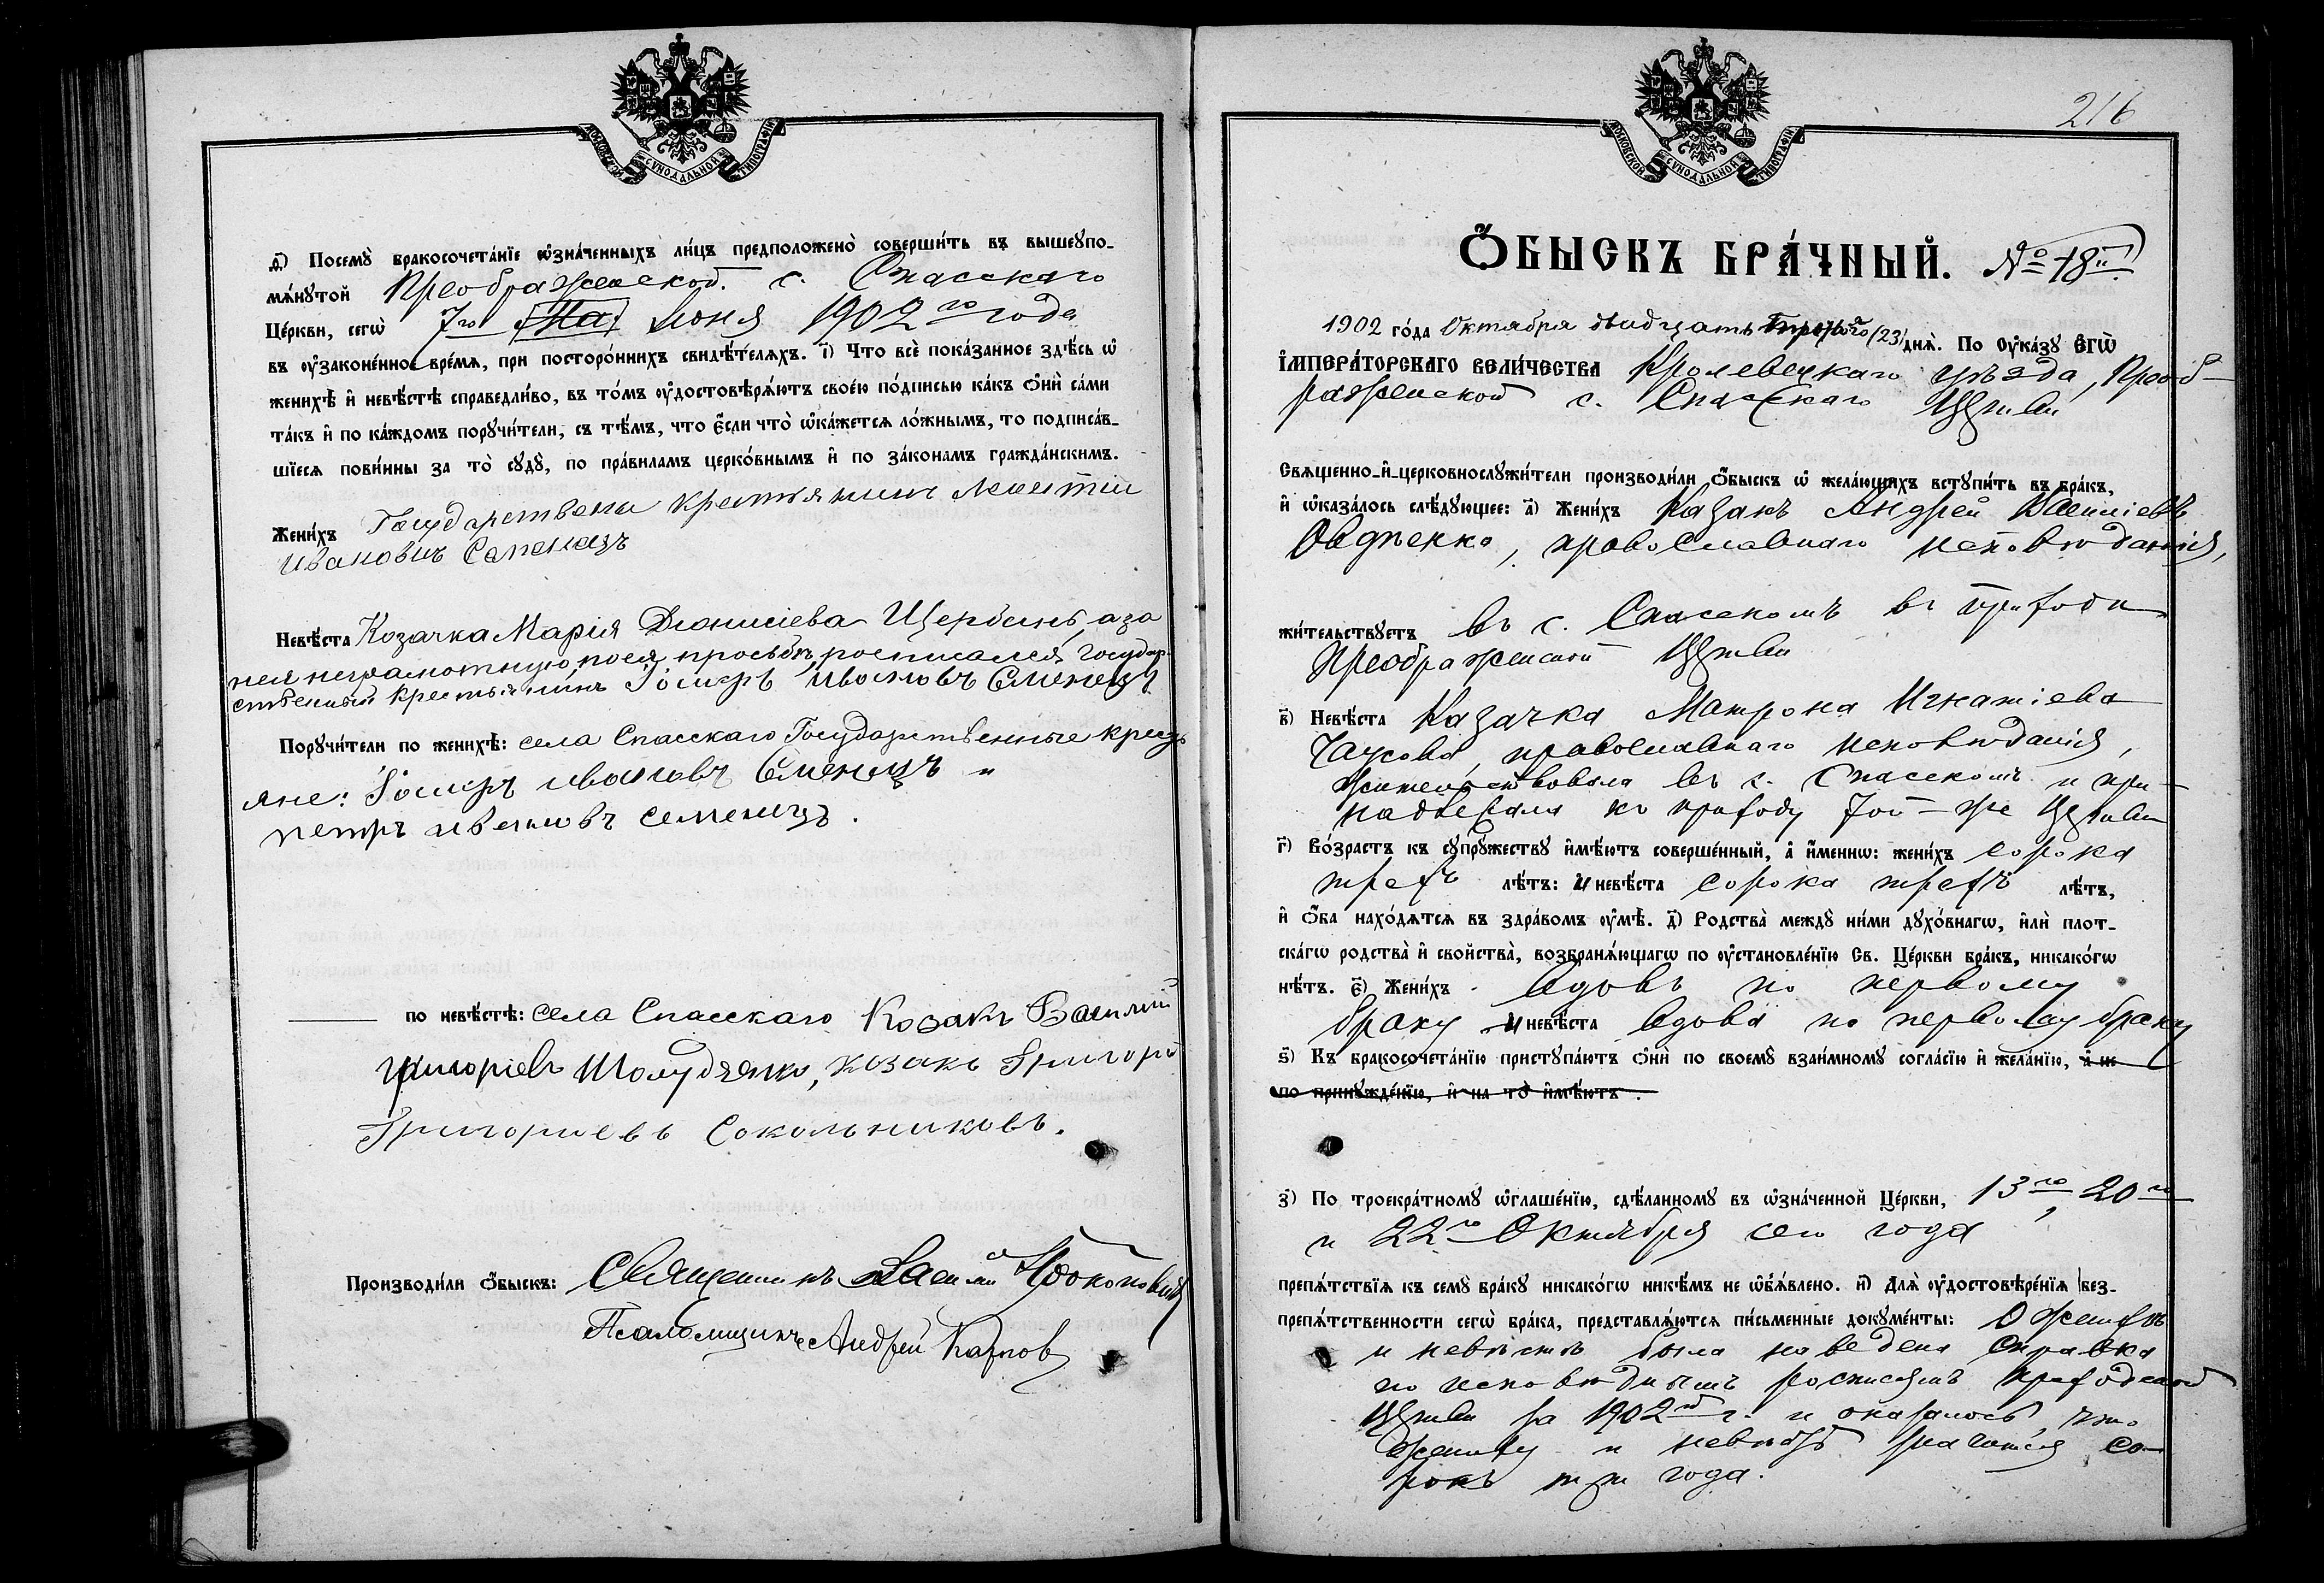 МОСКОВСКОЙ СѴНОДАЛЬНОЙ ТИПОГРАФІИ
ѳ҃) Посемꙋ̀ бракосочета́нїе ѡ҆зна́ченныхъ ли́цъ предположено̀ соверши́ть въ вышеꙋпо-
мѧ́нꙋтой Преображенской с. Спасскаго
Це́ркви, сегѡ̀ 7го Іюня 1902го года
въ ᲂу҆зако́неⷩ҇ное вре́мѧ, при посторо́ннихъ свидѣ́телѧхъ. і҃) Что всѐ пока́занное здѣ́сь ѡ҆
женихѣ̀ и҆ невѣ́стѣ справедли́во, въ то́мъ ᲂу҆достовѣрѧ́ютъ свое́ю по́дписью ка́къ ѻ҆нѝ са́ми
та́къ и҆ по ка́ждомъ порꙋчи́тели, съ тѣ́мъ, что є҆́сли что̀ ѡ҆ка́жетсѧ ло́жнымъ, то подписа́в-
шїесѧ пови́нны за то̀ сꙋдꙋ̀, по пра́виламъ церко́внымъ и҆ по зако́намъ гражда́нскимъ.
Жени́хъ Государствены крестьянинъ
Ивановичъ Семенецъ
Невѣ́ста Козачка Марія Діонисіева Щербина, а за
нея неграмотную, по ея просьбѣ росписался государ-
ственный крестьянинъ Ивановъ Семенецъ
Порꙋчи́тели по женихѣ̀: села Спасскаго Государственные кресть
яне: Ивановъ Семенецъ и
петръ ивановъ семенецъ.
по невѣ́стѣ: села Спасскаго Козакъ Василій
Григоріевъ Шолудченко, козакъ Григорій
Григориевъ Сокольниковъ.
Производи́ли ѻ҆́быскъ: Священникъ Василій
Псаломщикъ Андрей Карпов
216
МОСКОВСКОЙ СѴНОДАЛЬНОЙ ТИПОГРАФІИ
Ѻ҆́БЫСКЪ БРА́ЧНЫЙ. № 18й
1902 го́да Октября двидцать третьяго (23) днѧ̀. По ᲂу҆ка́зꙋ Є҆ГѠ̀
І҆МПЕРА́ТОРСКАГО ВЕЛИ́ЧЕСТВА Кролевецкаго уѣзда, Преоб-
раженской с. Спасскаго Церкви
Свѧщенно-и҆-церковнослꙋжи́тели производи́ли ѻ҆́быскъ ѡ҆ жела́ющихъ встꙋпи́ть въ бра́къ,
и҆ ѡ҆каза́лось слѣ́дꙋющее: а҃) Жени́хъ Казакъ Андрей Василіевъ
Овдѣенко, православнаго исповѣданія,
жи́тельствꙋетъ въ с. Спасскомъ въ приходѣ
Преображенской Церкви
в҃) Невѣ́ста Казачка Матрона Игнатіева
Чаусова, православнаго исповѣданія,
жительствовала въ с. Спасскомъ и при-
надлежала къ приходу той-же Церкви
г҃) Во́зрастъ къ сꙋпрꙋ́жествꙋ и҆мѣ́ютъ соверше́нный, а҆ и҆́меннѡ: жени́хъ сорока
трехъ лѣ́тъ: и невѣ́ста сорока трехъ лѣ́тъ,
и҆ ѻ҆́ба нахо́дѧтсѧ въ здра́вомъ ᲂу҆мѣ̀. д҃) Родства̀ междꙋ̀ ни́ми дꙋхо́внагѡ, и҆лѝ плот-
ска́гѡ родства̀ и҆ свойства̀, возбранѧ́ющагѡ по ᲂу҆становле́нїю Св. Це́ркви бра́къ, никако́гѡ
нѣ́тъ. є҃) Жени́хъ вдовъ по первому
браку и невѣ́ста вдова по первому браку
ѕ҃) Къ бракосочета́нїю пристꙋпа́ютъ ѻ҆нѝ по своемꙋ̀ взаи́мномꙋ согла́сїю и҆ жела́нїю, а҆ не
по принꙋжде́нїю, и҆ на то̀ и҆мѣ́ютъ .
з҃) По троекра́тномꙋ ѡ҆глаше́нїю, сдѣ́ланномꙋ въ ѡ҆зна́ченной Це́ркви, 13го, 20го
и 22го Октября сего года
препѧ́тствїѧ къ семꙋ̀ бра́кꙋ никако́гѡ никѣ́мъ не ѡ҆б̾ѧ́влено. и҃) Длѧ̀ ᲂу҆достовѣре́нїѧ без-
препѧ́тственности сегѡ̀ бра́ка, представлѧ́ютсѧ пи́сьменные докꙋме́нты: О женихѣ
и невѣстѣ была наведена справка
по исповѣднымъ росписямъ приходской
Церкви за 1902й г. и оказалось, что
жениху и невѣстѣ значится со-
рокъ три года.